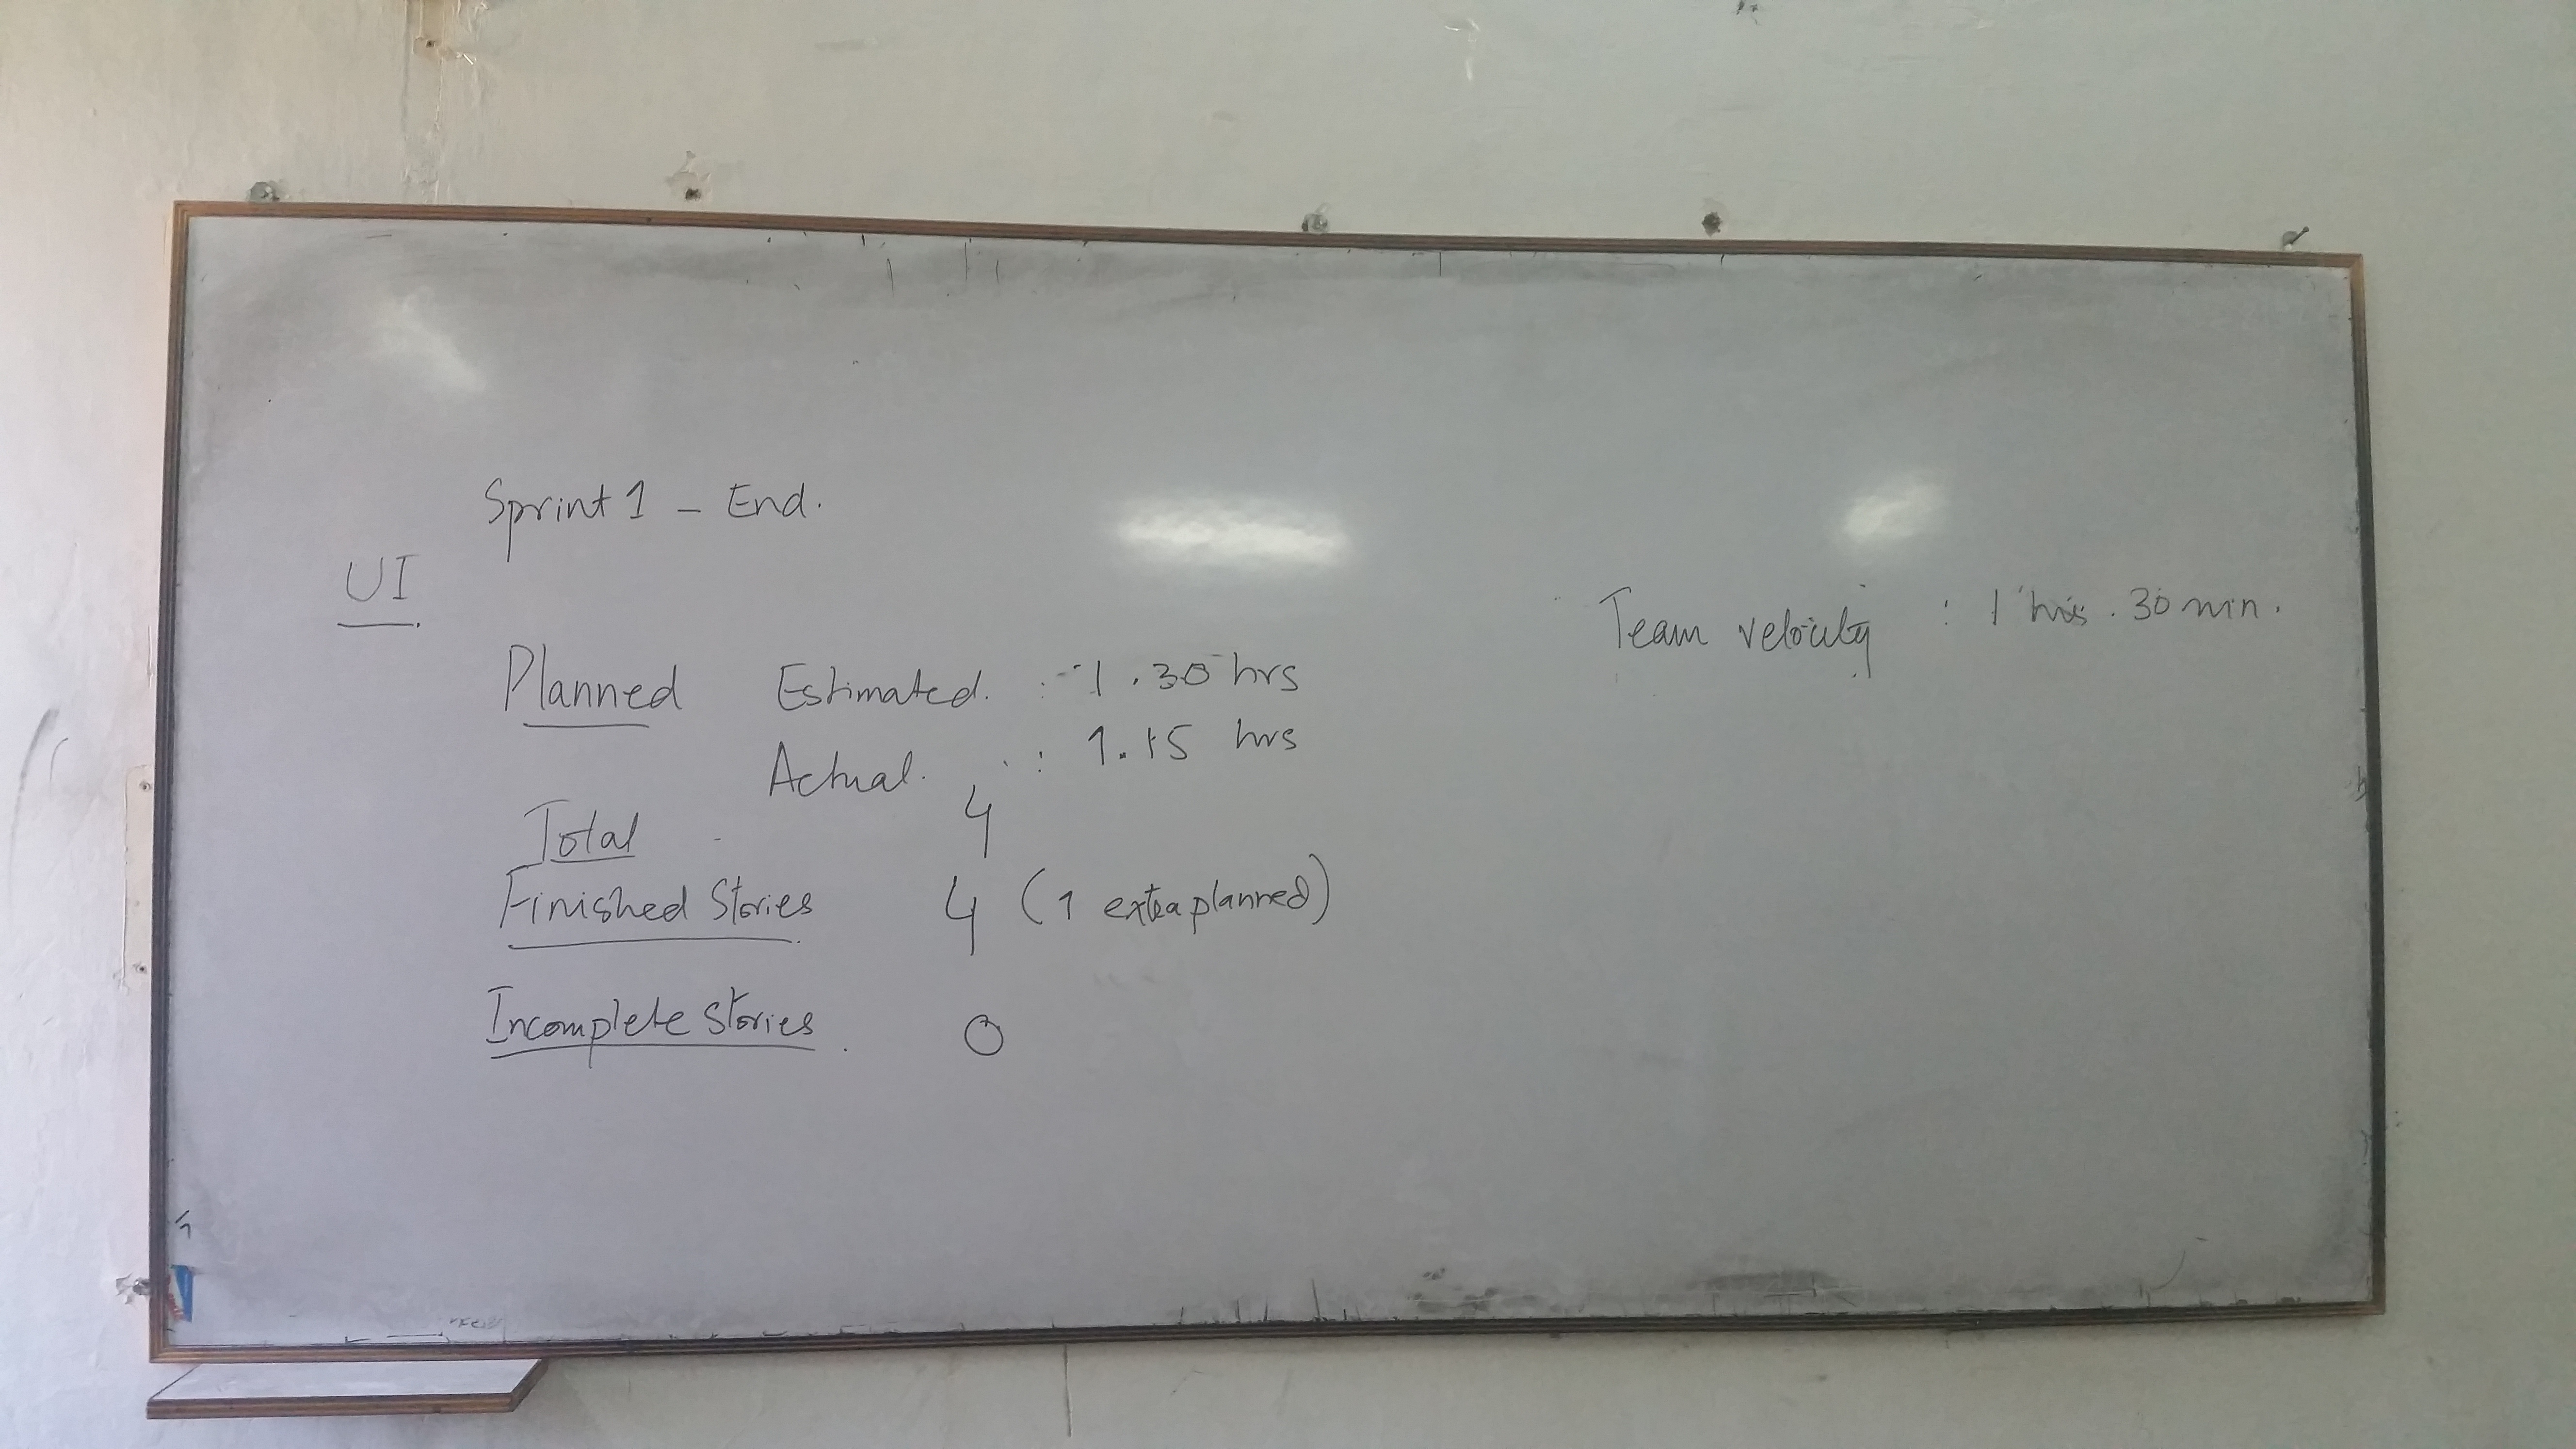 Sprint 1 - End.
UI
Team velocity : 1 hrs. 30 min.
Planned Estimated. : 1.30 hrs
Actual. : 1.15 hrs
Total 4
Finished Stories 4 (1 extra planned)
Incomplete Stories. 0